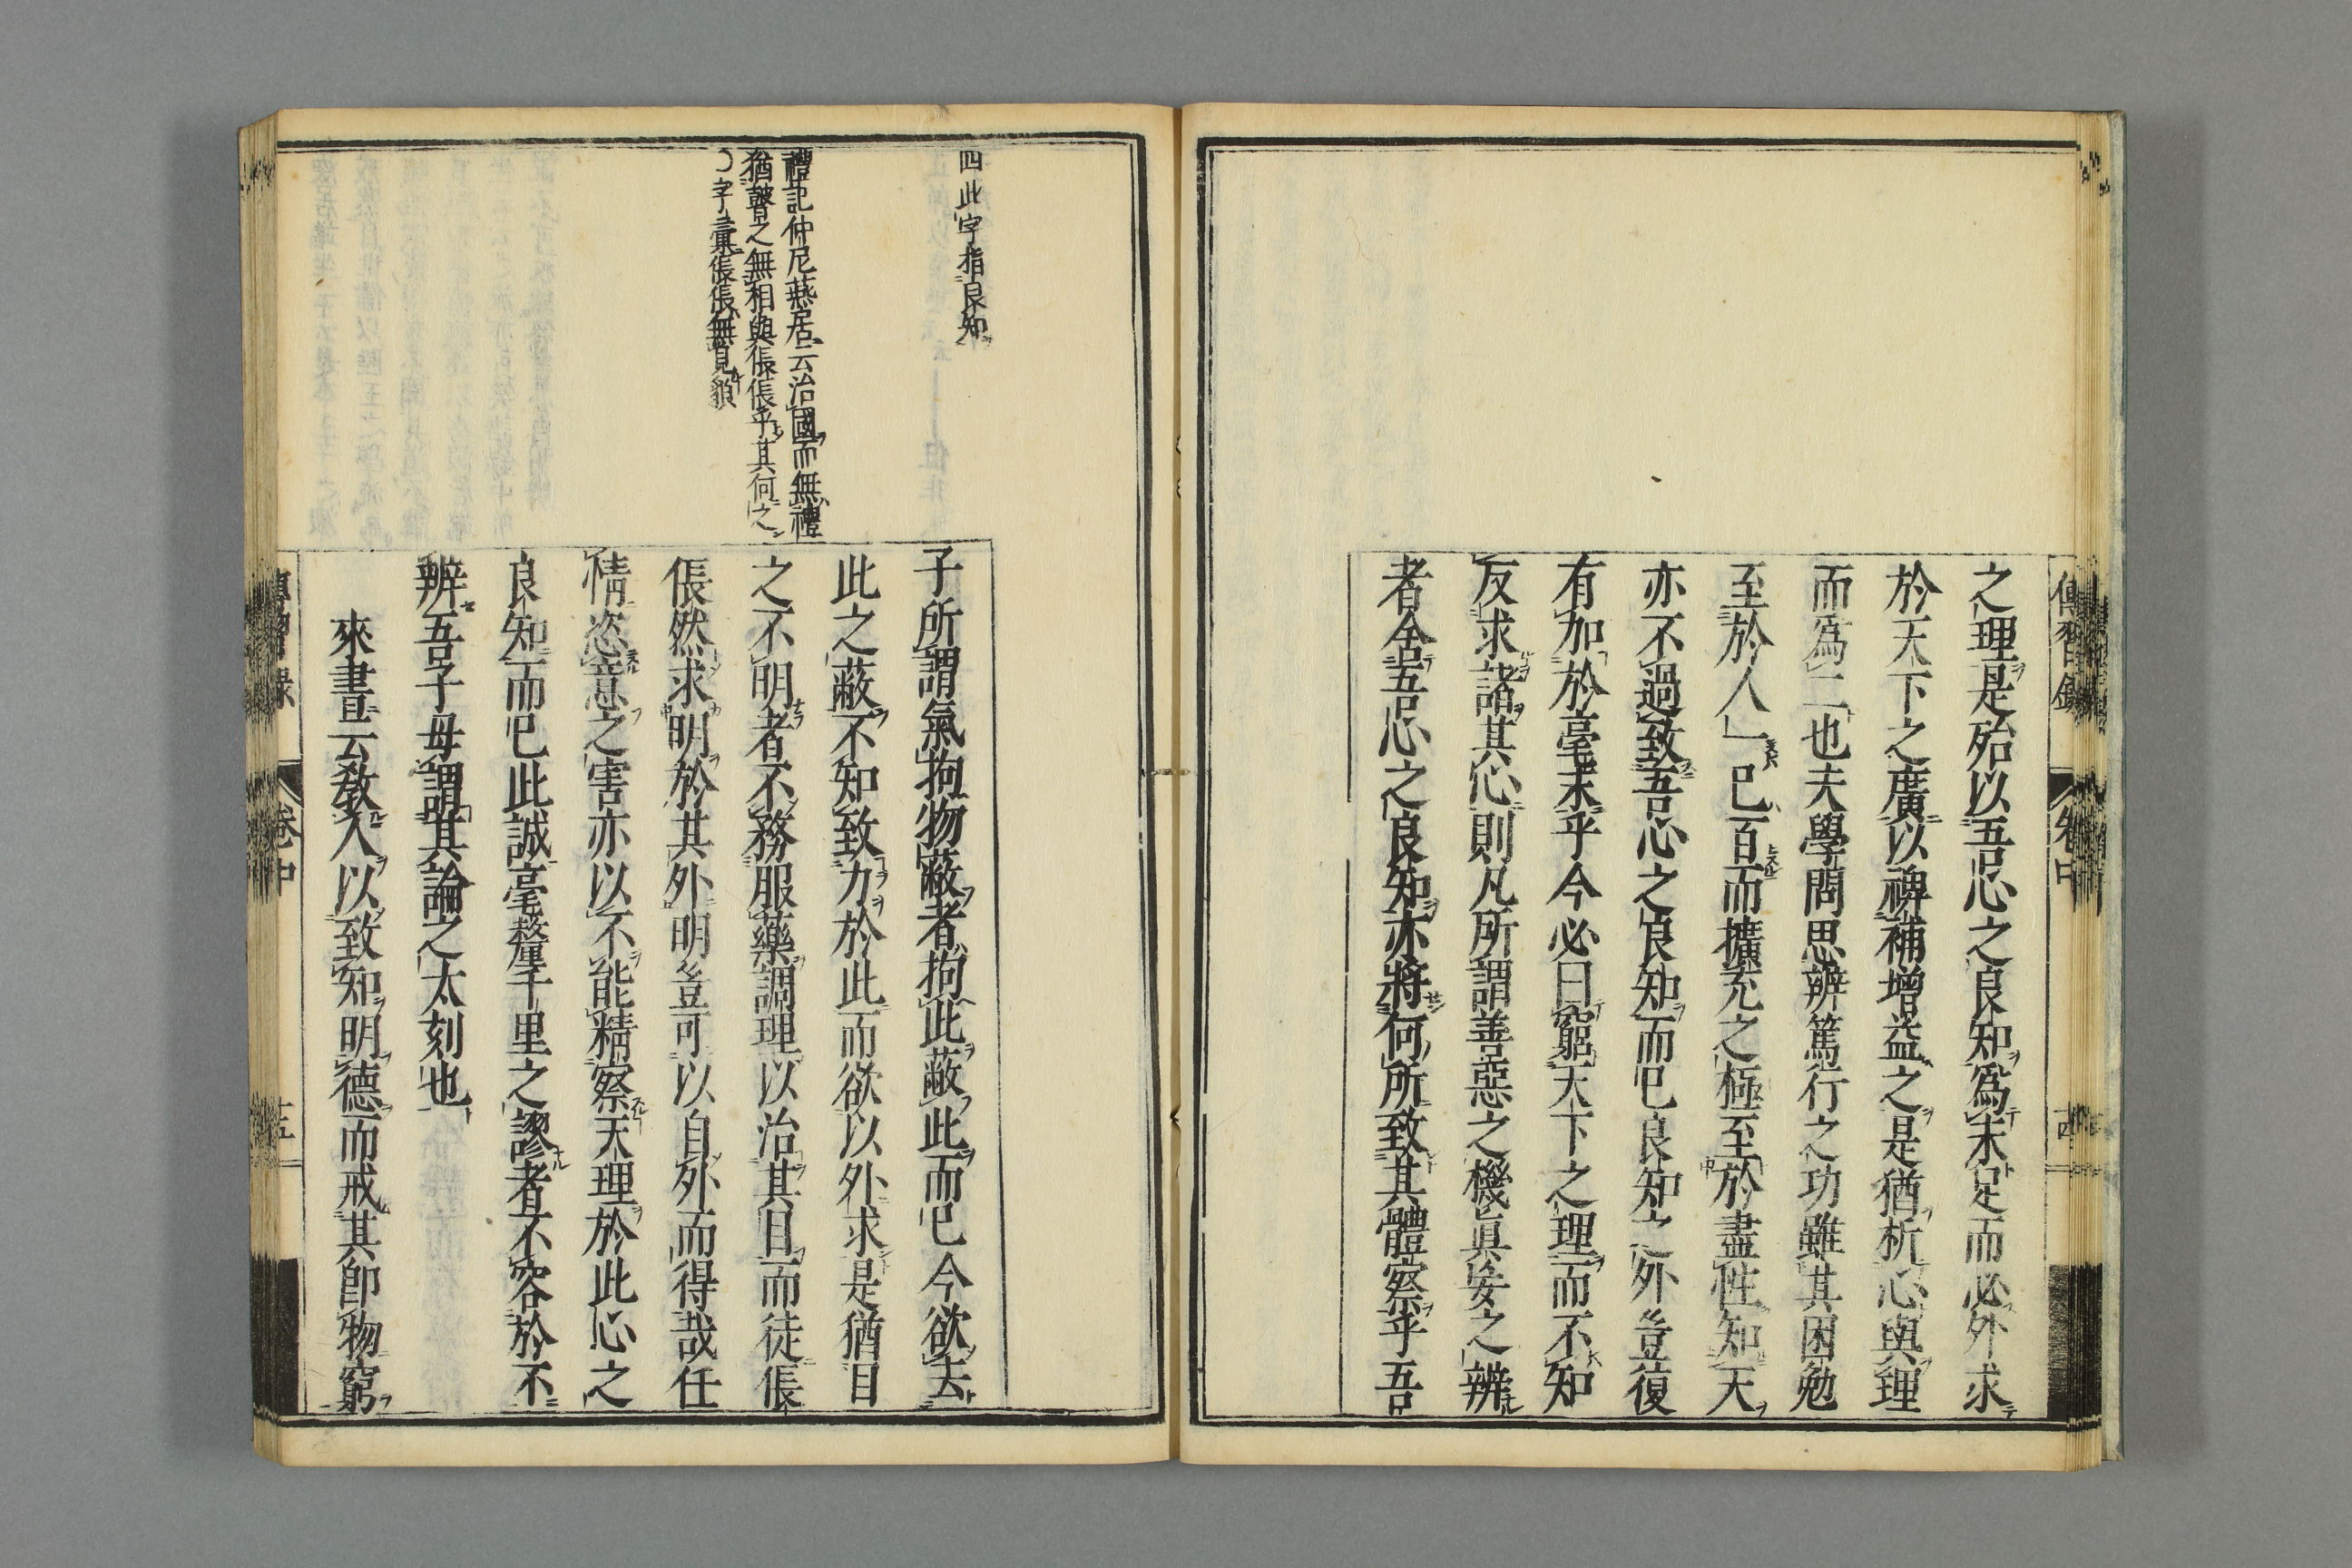 傳習錄 卷中 十四
之理是殆以吾心之良知爲未足而必外求
於天下之廣以裨補增益之是猶析心與理
而爲二也夫學問思辨篤行之功雖其困勉
至於人一己百而擴充之極至於盡性知天
亦不過致吾心之良知而已良知之外豈復
有加於毫末乎今必曰窮天下之理而不知
反求諸其心則凡所謂善惡之機眞妄之辨
者舍吾心之良知亦將何所致其體察乎吾
四此字指良知
禮記仲尼燕居云治國而無禮
猶瞽之無相與倀倀乎其何之
〇字彙倀倀無見貌
子所謂氣拘物蔽者拘此蔽此而已今欲去
此之蔽不知致力於此而欲以外求是猶目
之不明者不務服藥調理以治其目而徒倀
倀然求明於其外明豈可以自外而得哉任
情恣意之害亦以不能精察天理於此心之
良知而已此誠毫釐千里之謬者不容於不
辨吾子毋謂其論之太刻也
來書云敎人以致知明德而戒其卽物窮
傳習錄 卷中 十五